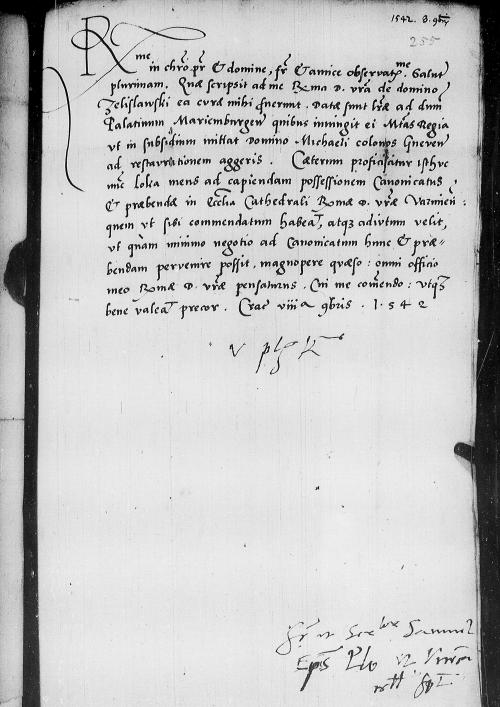 1542. 8. 9bris
255
Rme in chro pr et domine, fr et amice observatme. Salutē
plurimam. Quae scripsit ad me Rma D. vra de domino
Zelislawski ea curae mihi fuerunt. Datae sunt lrae ad dnm
Palatinum Marienburgeñ quibus iniungit ei Mtas Regia
ut in subsidium mittat Domino Michaeli colonos Gneveñ
ad restaurationem aggeris. Caeterum proficiscitur isthuc
nunc Loka mens ad capiendam possessionem Canonicatus
et praebendae in Ecclia Cathedrali Rmae D. vrae Varmieñ:
quem ut sibi commendatum habeat, atq3 adiutum velit,
ut quam minimo negotio ad Canonicatum hunc et prae-
bendam pervenire possit, magnopere quaeso: omni officio
meo Rmae D. vrae pensaturus. Cui me comendo: utq3
bene valeat precor. Crac viiia 9bris. 1542
Samuel
Eps